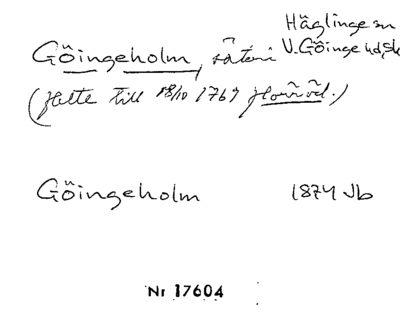 Häglinge sn
Göingeholm, säteri V. Göinge hd, Sk
(hette till 18/10 1767 Hovröd.)
Göingeholm 1874 Jb
Nr 17604